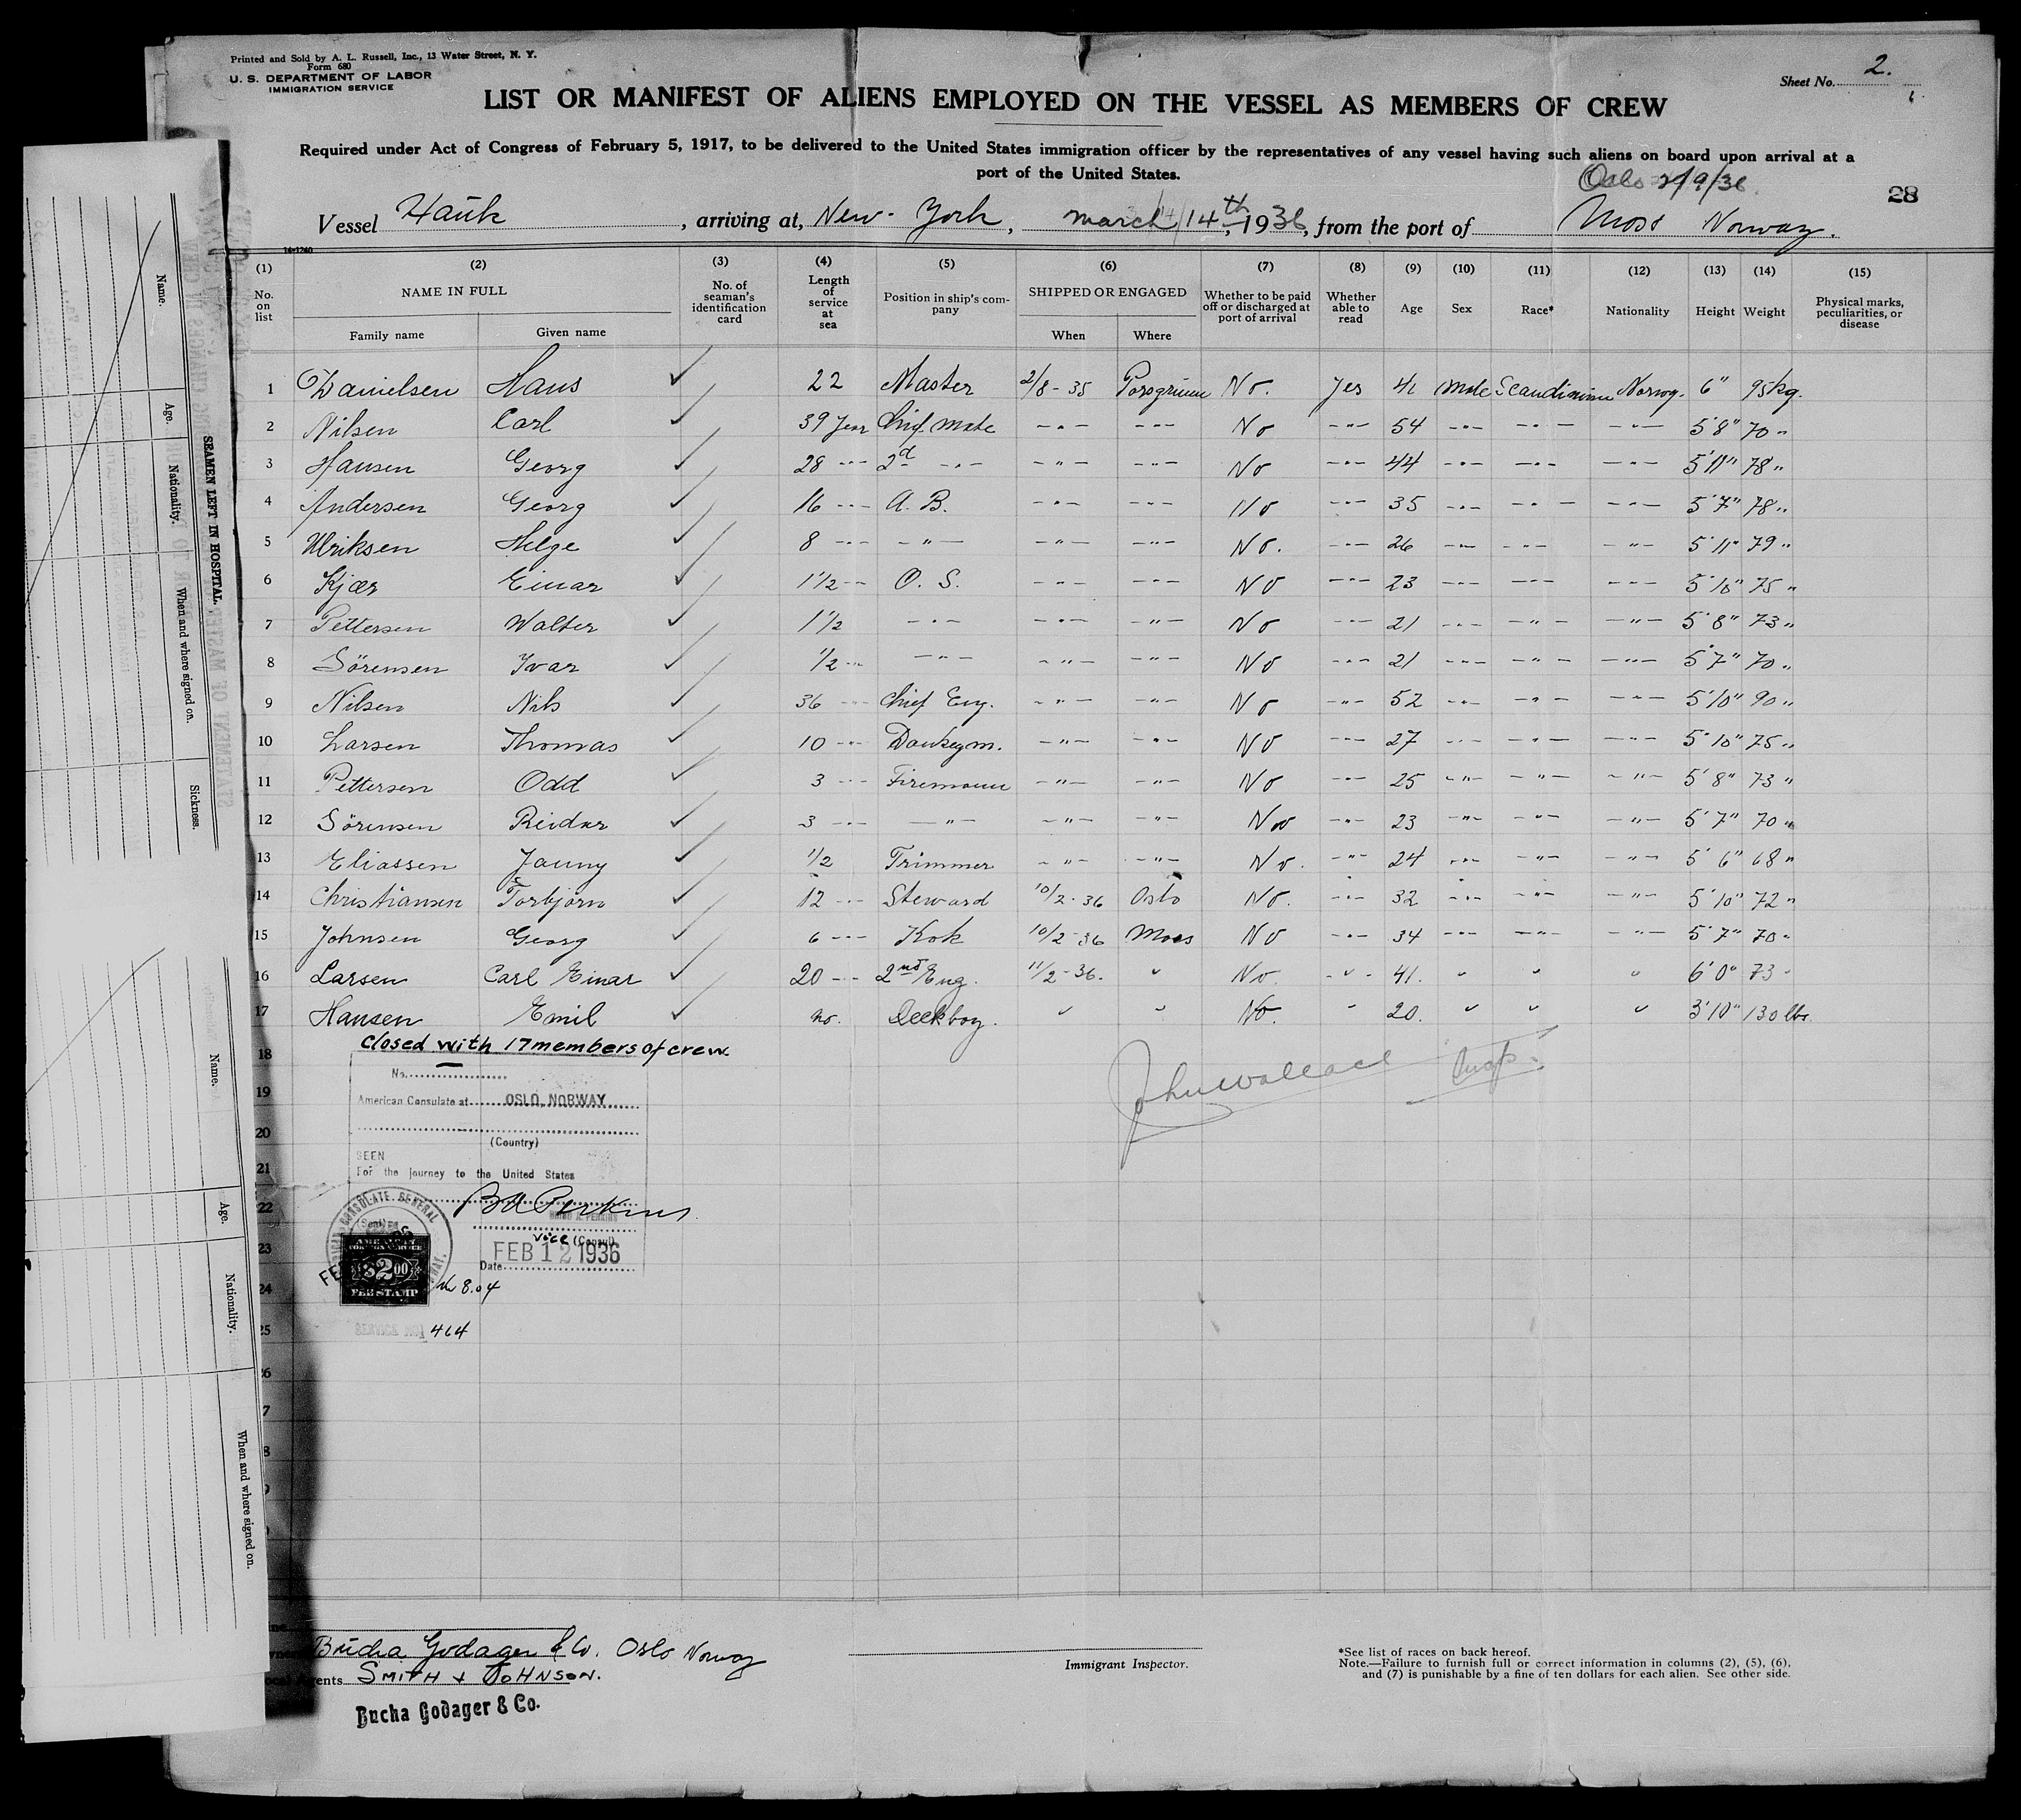 Printed and Sold by A. L. Russell, Inc., 13 Water Street, N. Y.
Form 680
U. S. DEPARTMENT OF LABOR
IMMIGRATION SERVICE
Sheet No. 2.
LIST OR MANIFEST OF ALIENS EMPLOYED ON THE VESSEL AS MEMBERS OF CREW
Required under Act of Congress of February 5, 1917, to be delivered to the United States immigration officer by the representatives of any vessel having such aliens on board upon arrival at a
port of the United States.
Oslo 2/9/36
28
Vessel Hauk, arriving at, New-York, march 14th, 1936, from the port of Moss Norway.
14-1240
(1) (2) (3) (4) (5) (6) (7) (8) (9) (10) (11) (12) (13) (14) (15)
No. on list NAME IN FULL No. of seaman's identification card Length of service at sea Position in ship's company SHIPPED OR ENGAGED Whether to be paid off or discharged at port of arrival Whether able to read Age Sex Race* Nationality Height Weight Physical marks, peculiarities, or disease
Family name Given name When Where
1 Danielsen Hans 22 Master 2/8-35 Porsgrunn No. yes 41 Male Scandinivian Norweg. 6" 95kg.
2 Nilsen Carl 39 Year Chif. mate -"- -"- No -"- 54 -"- -"- -"- 5'8" 70 "
3 Hansen Georg 28 -"- 2d -"- -"- -"- No -"- 44 -"- -"- -"- 5'11" 78 "
4 Andersen Georg 16 -"- A. B. -"- -"- No -"- 35 -"- -"- -"- 5'7" 78 "
5 Ulriksen Helge 8 -"- -"- -"- -"- No. -"- 26 -"- -"- -"- 5'11" 79 "
6 Kjær Einar 1 1/2 -"- O. S. -"- -"- No -"- 23 -"- -"- -"- 5'10" 75 "
7 Pettersen Walter 1 1/2 -"- -"- -"- No -"- 21 -"- -"- -"- 5'8" 73 "
8 Sörensen Ivar 1/2 -"- -"- -"- -"- No -"- 21 -"- -"- -"- 5'7" 70 "
9 Nilsen Nils 36 -"- Chief Eng. -"- -"- No -"- 52 -"- -"- -"- 5'10" 90 "
10 Larsen Thomas 10 -"- Donkeym. -"- -"- No -"- 27 -"- -"- -"- 5'10" 75 "
11 Pettersen Odd 3 -"- Firemann -"- -"- No -"- 25 -"- -"- -"- 5'8" 73 "
12 Sörensen Reidar 3 -"- -"- -"- -"- No -"- 23 -"- -"- -"- 5'7" 70 "
13 Eliassen Jonny 1/2 Trimmer -"- -"- No. -"- 24 -"- -"- -"- 5'6" 68 "
14 Christiansen Torbjörn 12 -"- Steward 10/2-36 Oslo No. -"- 32 -"- -"- -"- 5'10" 72 "
15 Johnsen Georg 6 -"- Kok 10/2-36 Moss No -"- 34 -"- -"- -"- 5'7" 70 "
16 Larsen Carl Einar 20 -"- 2nd Eng. 11/2-36. " No. -"- 41. " " " 6'0" 73 "
17 Hansen Emil no. Deckboy. " " No. " 20. " " " 5'10" 130 lbs.
Closed with 17 members of crew.
18
19
20
21
22
23
24
John Wallace Insp.
No.
American Consulate at OSLO, NORWAY
(Country)
SEEN
For the journey to the United States
Perkins
vice (Consul)
Date FEB 12 1936
CONSULATE GENERAL
(Seal)
AMERICAN
FOREIGN SERVICE
$2.00
FEE STAMP
8.04
SERVICE NO. 464
Owners Bucha Godager & Co. Oslo Norway
Local Agents SMITH & JOHNSON.
Bucha Godager & Co.
Immigrant Inspector.
*See list of races on back hereof.
Note.—Failure to furnish full or correct information in columns (2), (5), (6),
and (7) is punishable by a fine of ten dollars for each alien. See other side.
SEAMEN LEFT IN HOSPITAL.
Name. Age. Nationality. When and where signed on. Sickness.
Name. Age. Nationality. When and where signed on.